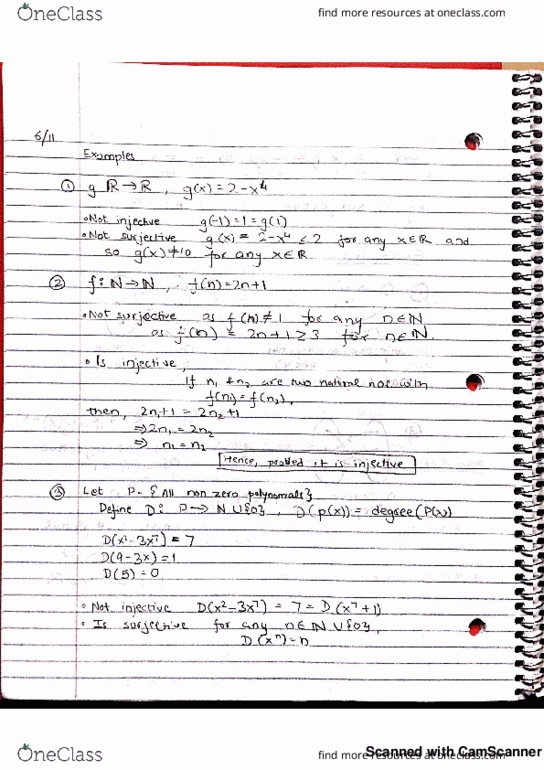 OneClass
find more resources at oneclass.com
6/11
Examples
① g R→R, g(x) = 2-x⁴
•Not injective g(-1) = 1 = g(1)
•Not surjective g(x) = 2-x⁴ ≤ 2 for any x∈R and
so g(x) ≠ 10 for any x∈R.
② f: N→N, f(n)=2n+1
•Not surjective as f(n) ≠ 1 for any n∈N
as f(n) = 2n+1 ≥ 3 for n∈N.
• Is injective,
If n₁ & n₂ are two natural nos with
f(n₁) = f(n₂),
then, 2n₁+1 = 2n₂+1
⇒ 2n₁ = 2n₂
⇒ n₁ = n₂
Hence, proved it is injective
③ Let P = {All non zero polynomials}
Define D: P → N ∪{0}, D(p(x)) = degree(P(x)
D(x²-3x⁷) = 7
D(9-3x) = 1
D(5) = 0
• Not injective D(x²-3x⁷) = 7 = D(x⁷+1)
• Is surjective for any n∈N ∪{0},
D(xⁿ) = n
OneClass
find more resources at oneclass.com
Scanned with CamScanner